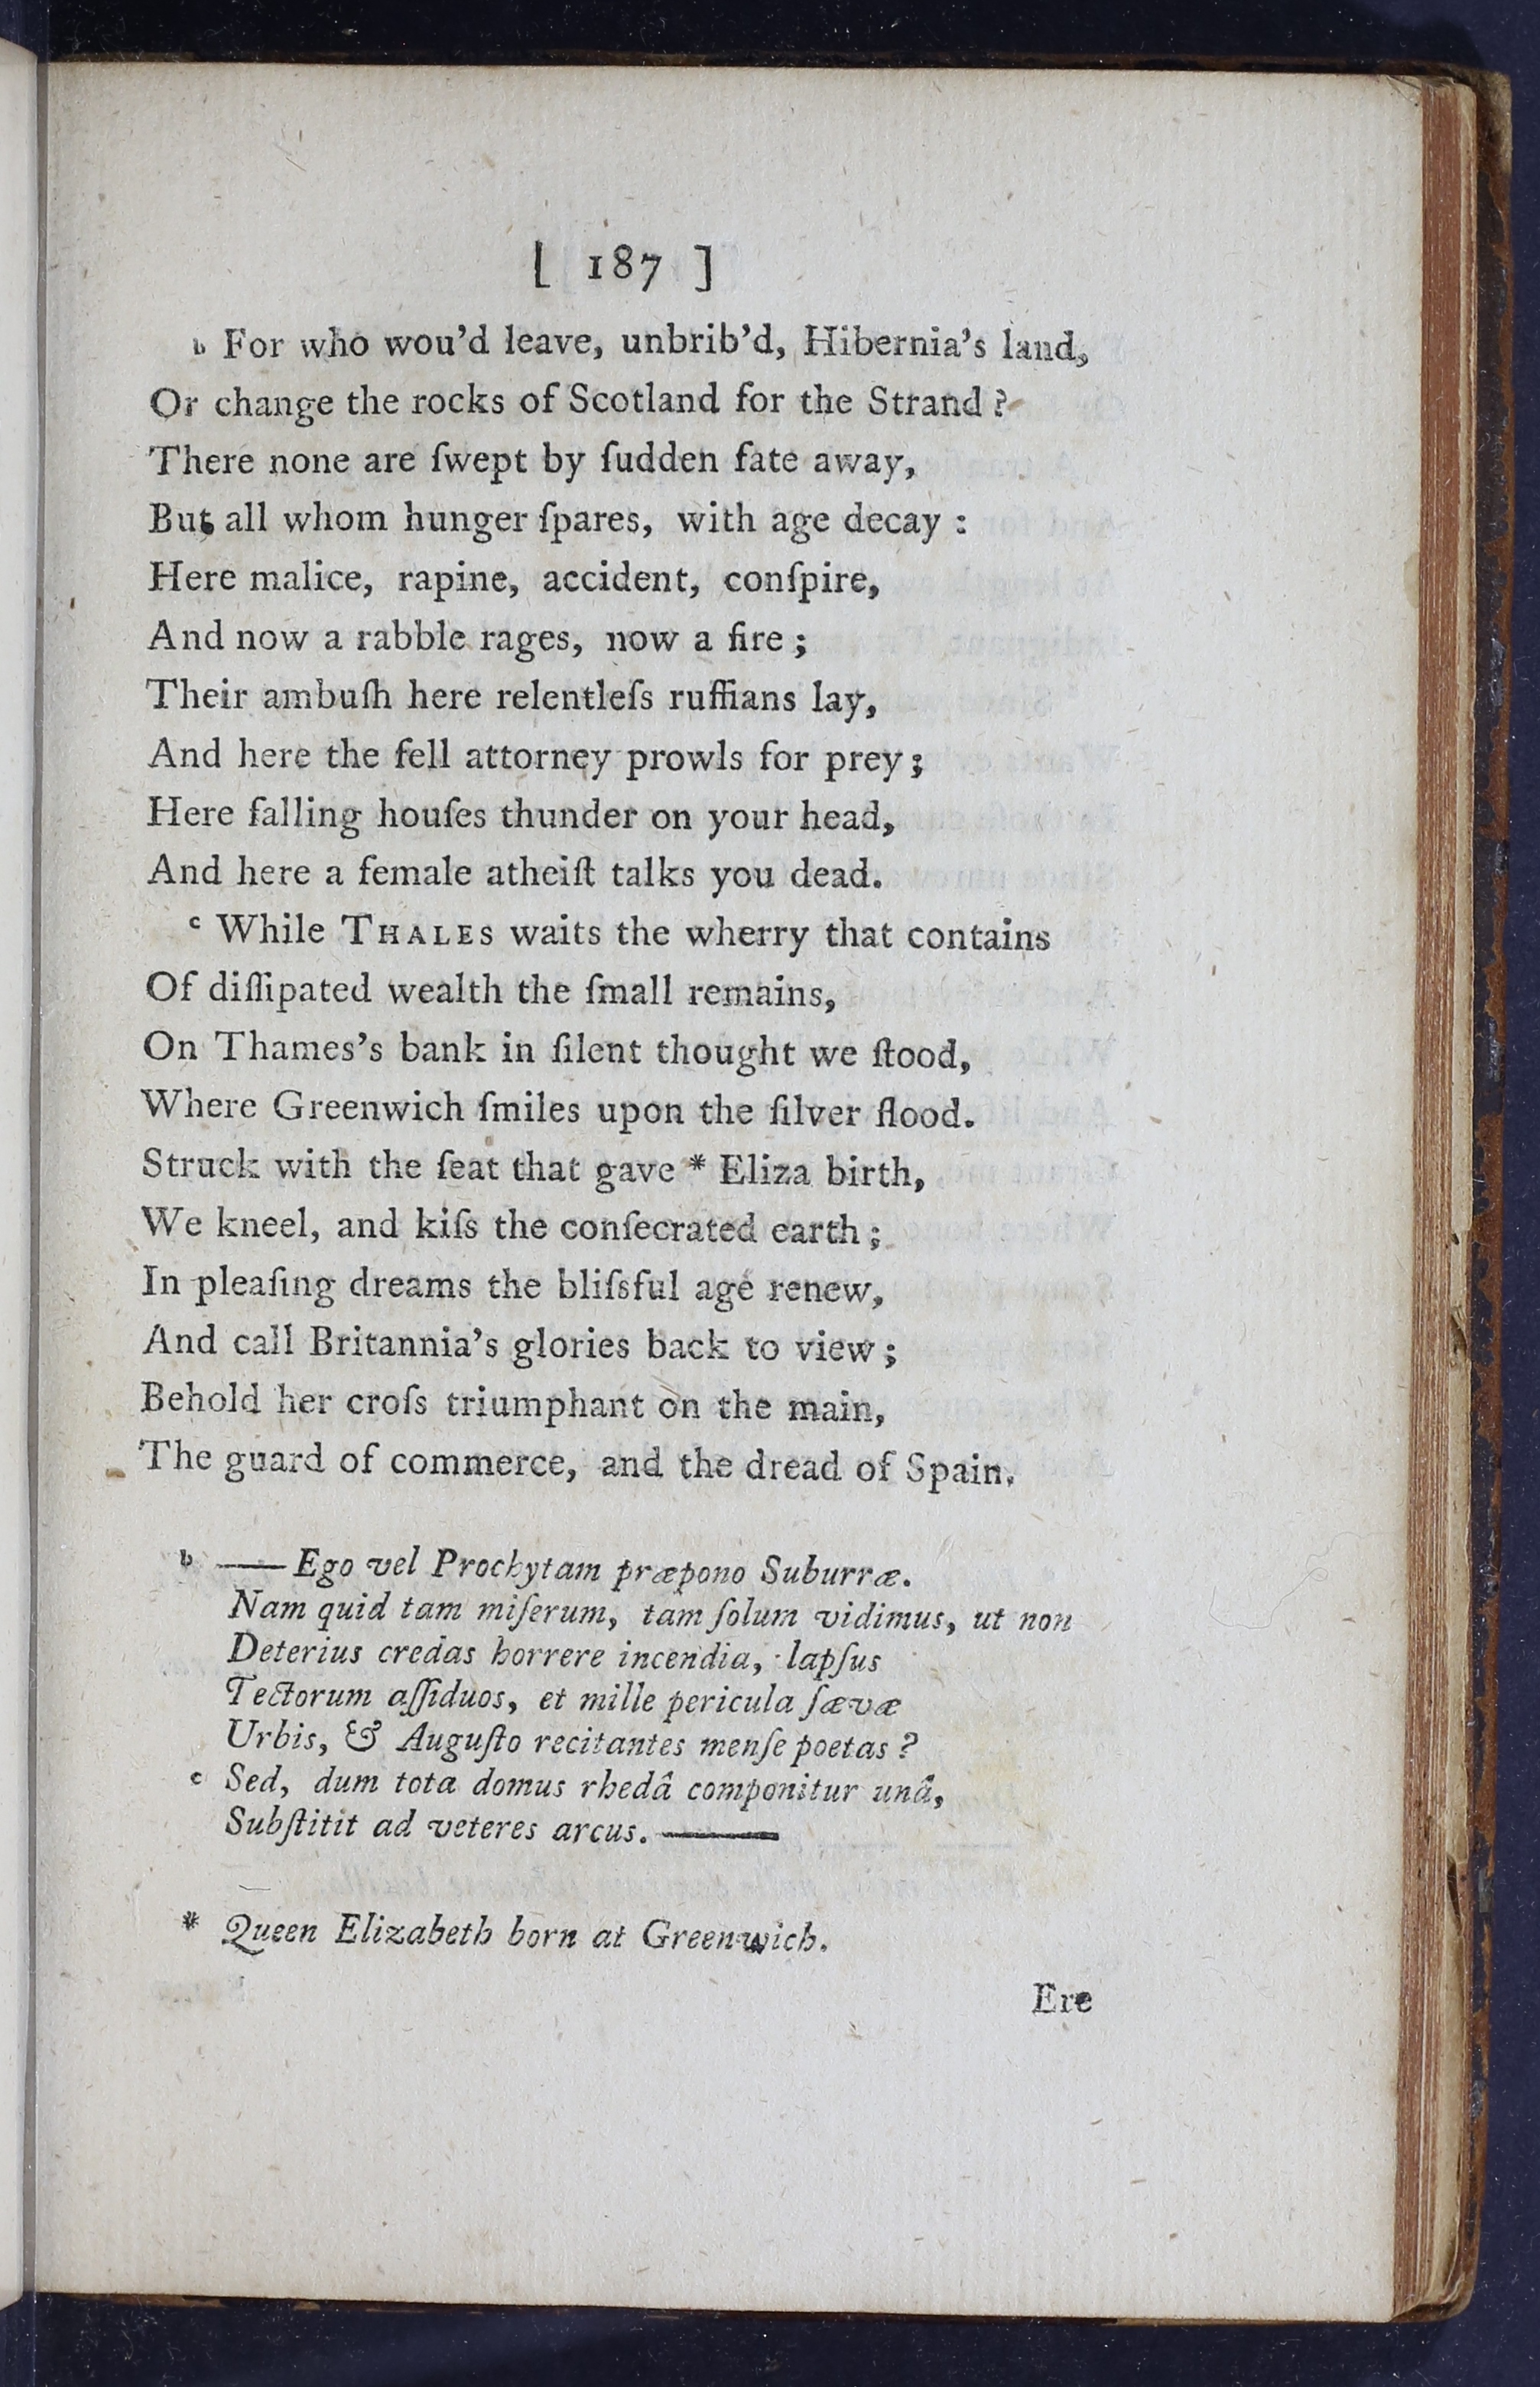 [ 187 ]
b For who wou'd leave, unbrib'd, Hibernia's land,
Or change the rocks of Scotland for the Strand ?
There none are ſwept by ſudden fate away,
But all whom hunger ſpares, with age decay :
Here malice, rapine, accident, conſpire,
And now a rabble rages, now a fire ;
Their ambuſh here relentleſs ruffians lay,
And here the fell attorney prowls for prey ;
Here falling houſes thunder on your head,
And here a female atheiſt talks you dead.
c While THALES waits the wherry that contains
Of diſſipated wealth the ſmall remains,
On Thames's bank in ſilent thought we ſtood,
Where Greenwich ſmiles upon the ſilver flood.
Struck with the ſeat that gave * Eliza birth,
We kneel, and kiſs the conſecrated earth ;
In pleaſing dreams the bliſsful age renew,
And call Britannia's glories back to view ;
Behold her croſs triumphant on the main,
The guard of commerce, and the dread of Spain.
b —— Ego vel Prochytam præpono Suburræ.
Nam quid tam miſerum, tam ſolum vidimus, ut non
Deterius credas horrere incendia, lapſus
Tectorum aſſiduos, et mille pericula ſævæ
Urbis, & Auguſto recitantes menſe poetas ?
c Sed, dum tota domus rhedâ componitur unâ,
Subſtitit ad veteres arcus. ———
* Queen Elizabeth born at Greenwich.
Ere